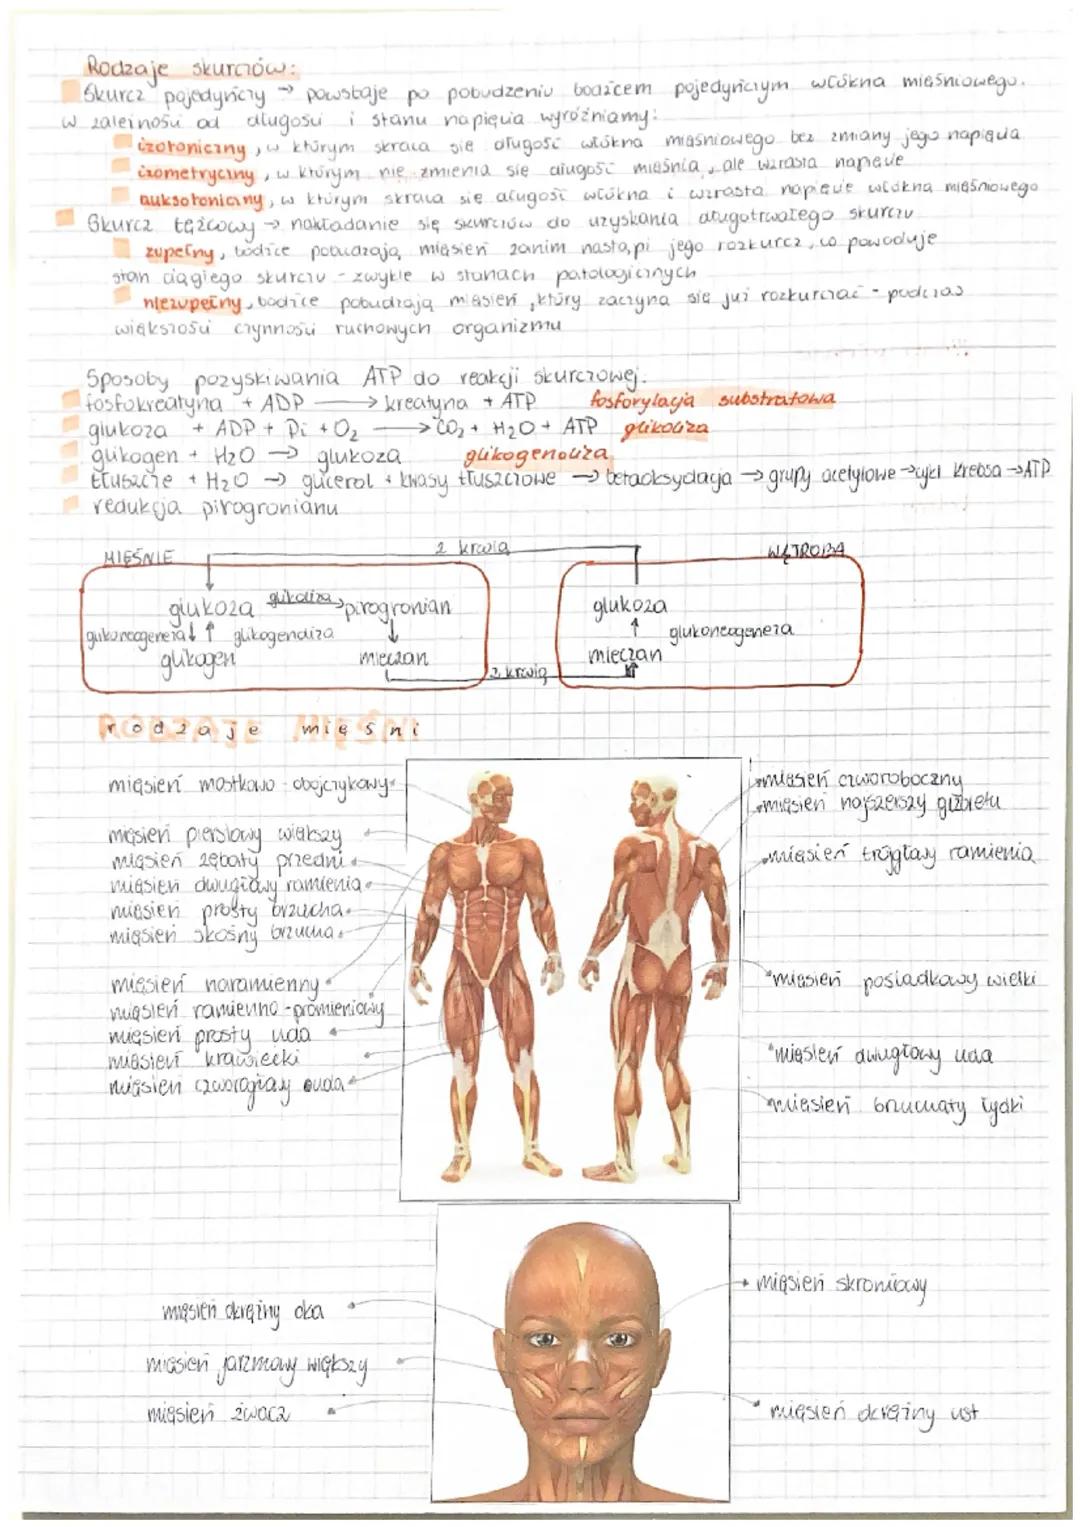 Rodzaje skurczów:
Skurcz pojedynczy → powstaje po pobudzeniu bodźcem pojedynczym włókna mięśniowego.
W zależności od długości i stanu napięcia wyróżniamy:
izotoniczny, w którym skraca się długość włókna mięśniowego bez zmiany jego napięcia
izometryczny, w którym nie zmienia się długość mięśnia, ale wzrasta napięcie
auksotoniczny, w którym skraca się długość włókna i wzrasta napięcie włókna mięśniowego
Skurcz tężcowy → nakładanie się skurczów do uzyskania długotrwałego skurczu
zupełny, bodźce pobudzają mięsień zanim nastąpi jego rozkurcz, co powoduje
stan ciągłego skurczu - zwykle w stanach patologicznych
niezupełny, bodźce pobudzają mięsień, który zaczyna się już rozkurczać - podczas
większości czynności ruchowych organizmu
Sposoby pozyskiwania ATP do reakcji skurczowej:
fosfokreatyna + ADP → kreatyna + ATP fosforylacja substratowa
glukoza + ADP + Pi + O₂ → CO₂ + H₂O + ATP glikoliza
glikogen + H₂O → glukoza glikogenoliza
tłuszcze + H₂O → glicerol + kwasy tłuszczowe → betaoksydacja → grupy acetylowe → cykl Krebsa → ATP
redukcja pirogronianu
MIĘŚNIE z krwią WĄTROBA
glukoza glikoliza pirogronian glukoza
glukoneogeneza ↓ ↑ glikogenoliza ↓ ↑ glukoneogeneza
glikogen mleczan mleczan
z krwią
RODZAJE MIĘŚNI
rodzaje mięśni
mięsień mostkowo-obojczykowy
mięsień czworoboczny
mięsień najszerszy grzbietu
mięsień piersiowy większy
mięsień zębaty przedni
mięsień trójgławy ramienia
mięsień dwugłowy ramienia
mięsień prosty brzucha
mięsień skośny brzucha
mięsień naramienny
mięsień pośladkowy wielki
mięsień ramienno-promieniowy
mięsień prosty uda
mięsień krawiecki
mięsień dwugłowy uda
mięsień czworogłowy uda
mięsień brzuchaty łydki
mięsień skroniowy
mięsień okrężny oka
mięsień jarzmowy większy
mięsień żwacz
mięsień okrężny ust